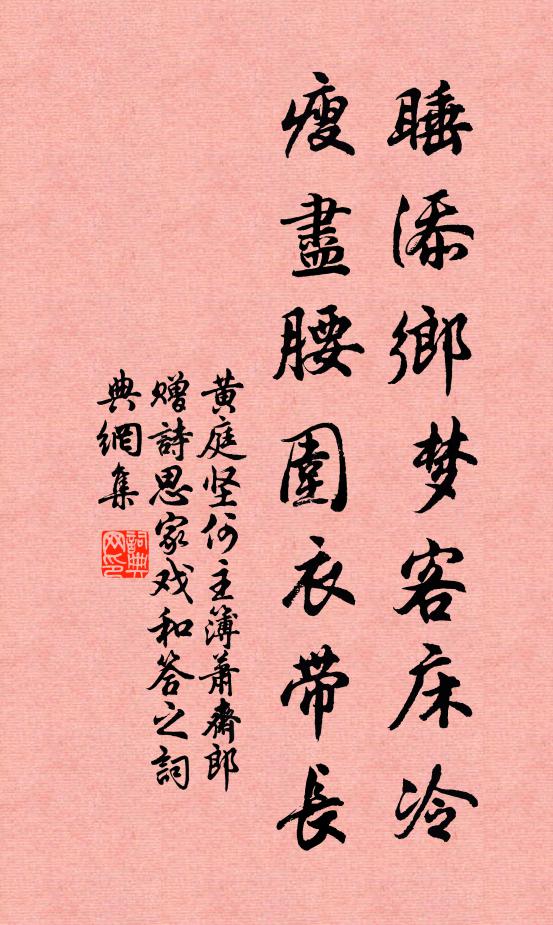 睡添鄉梦客床冷
瘦盡腰圍衣带長
黄庭坚何主簿萧齋郎
赠詩思家戏和答之詞
典網集
詞典网印